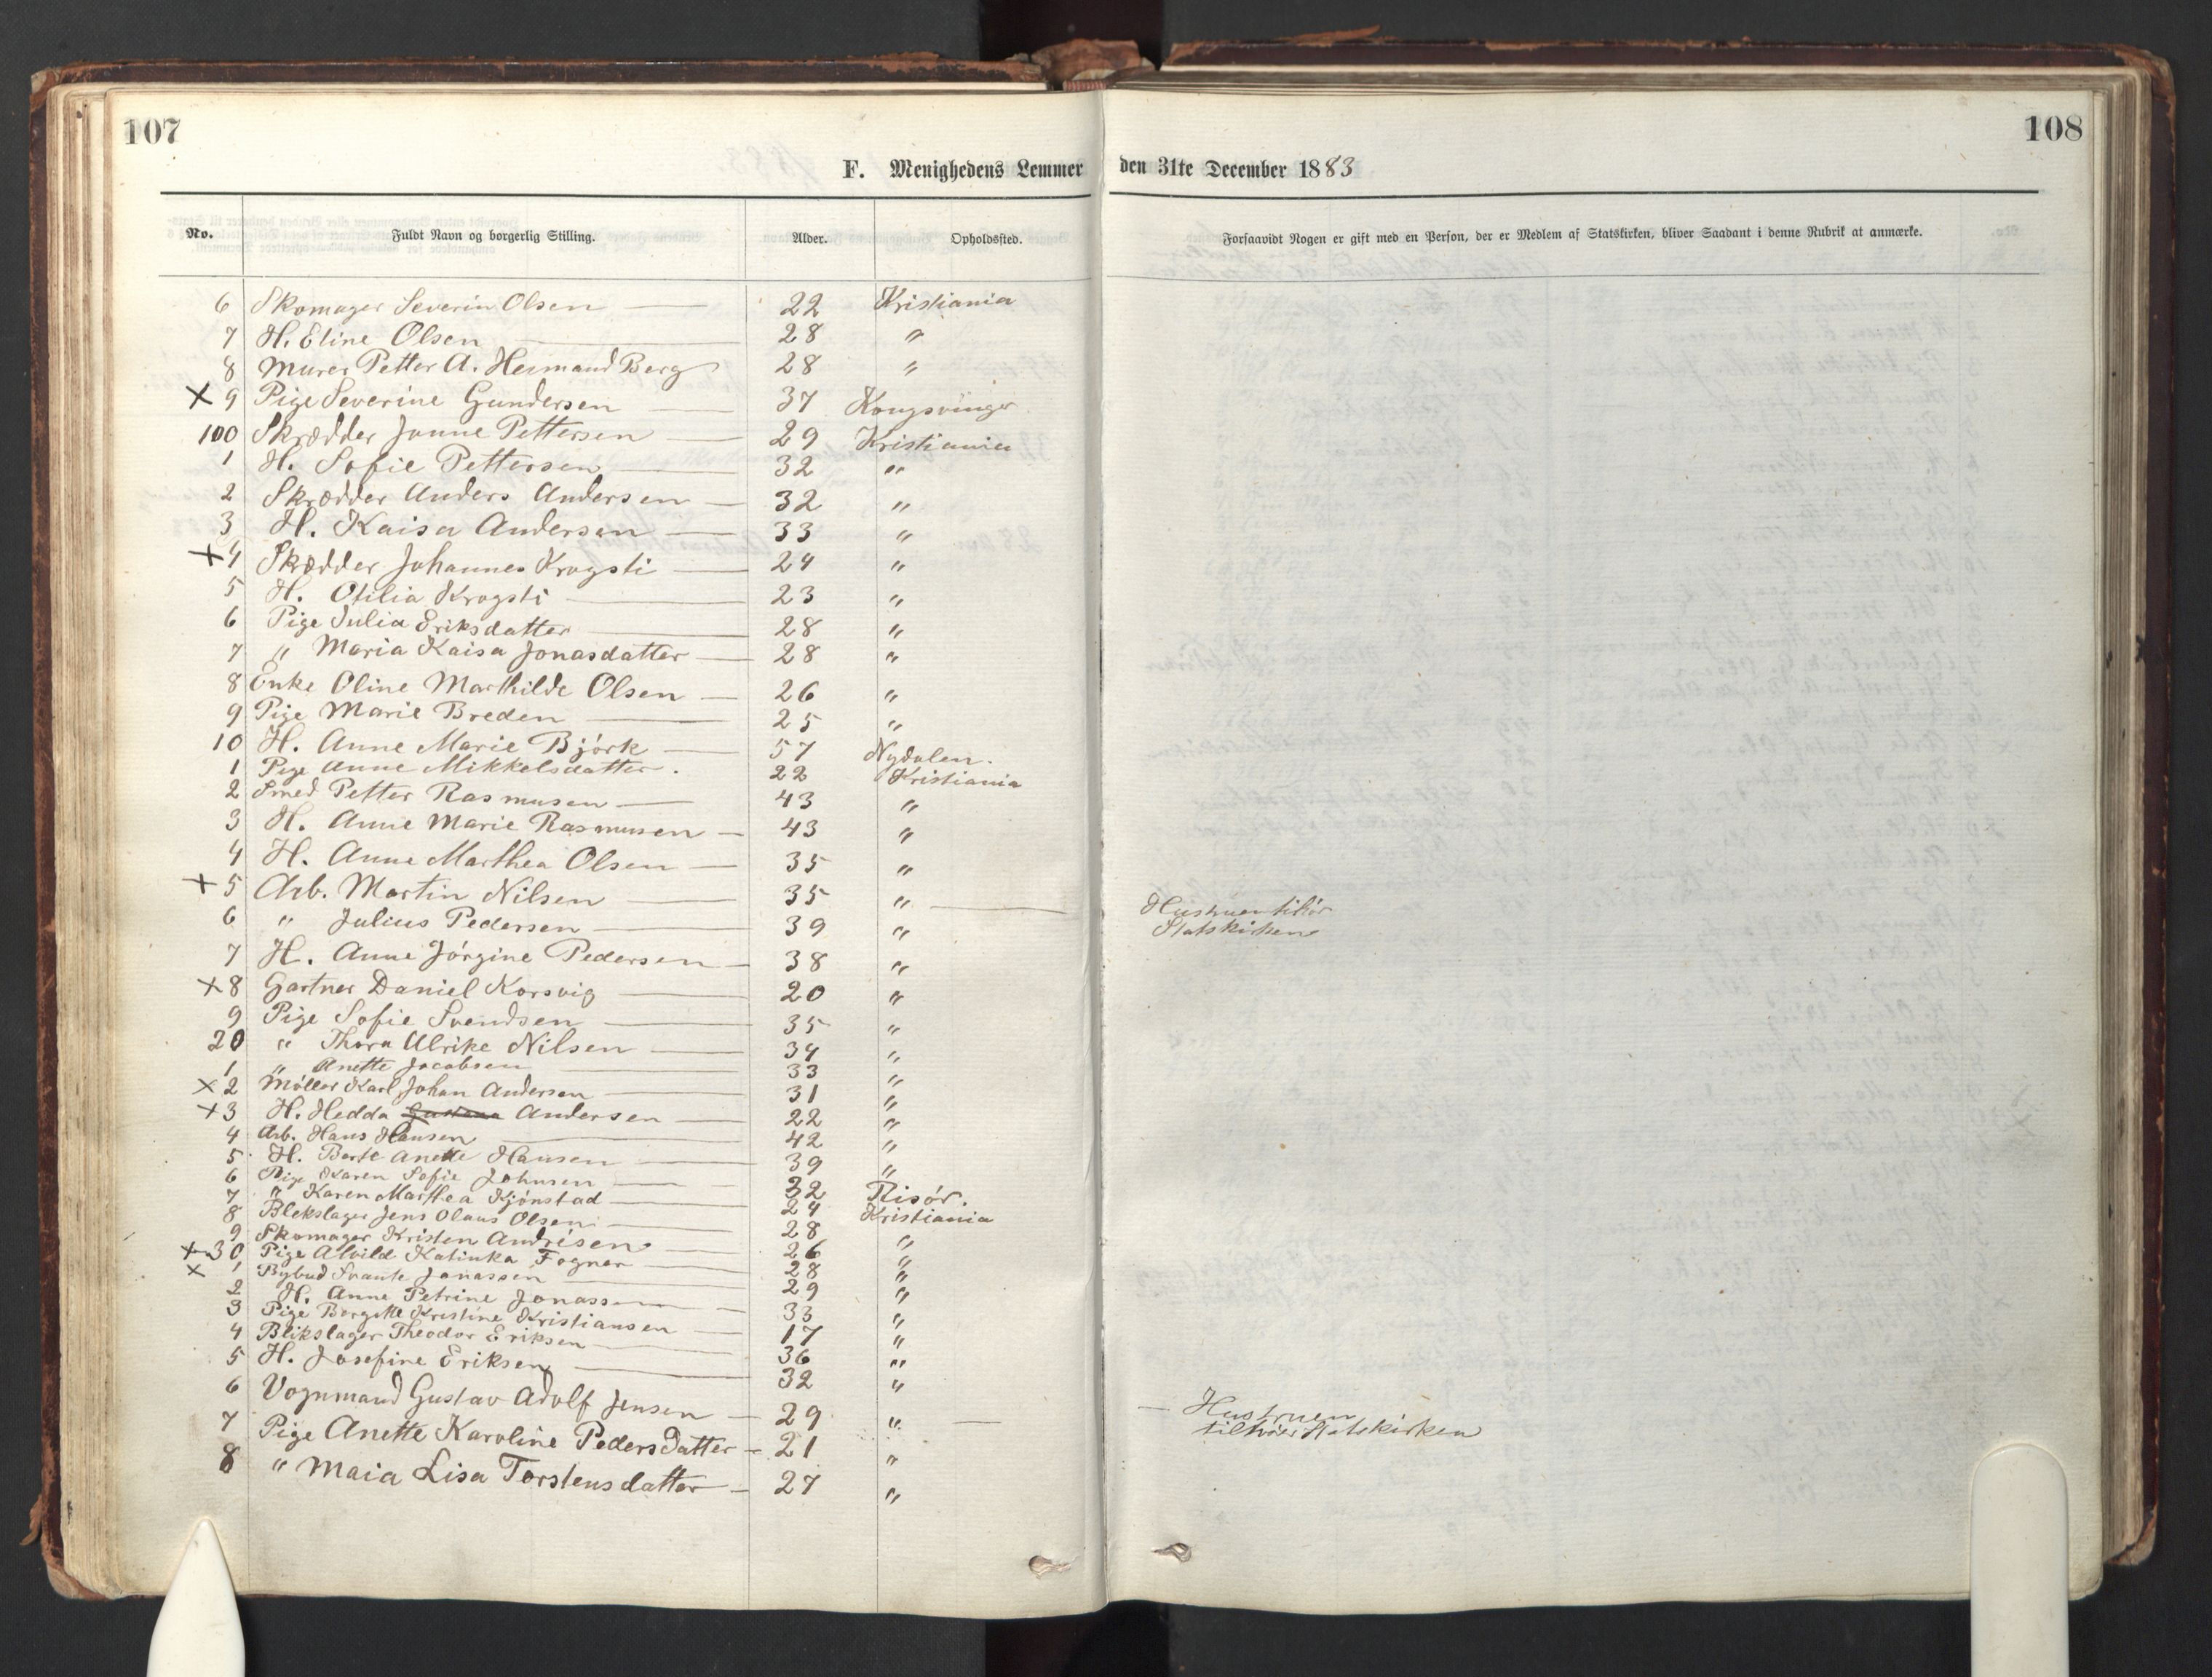 107
108
F. Menighedens Lemmer den 31te December 1883
No. Fuldt Navn og borgerlig Stilling. Alder. Opholdssted. Forsaavidt Nogen er gift med en Person, der er Medlem af Statskirken, bliver Saadant i denne Rubrik at anmærke.
6 Skomager Severin Olsen — 22 Kristiania
7 H. Eline Olsen — 28 "
8 Murer Petter A. Hermand Berg 28 "
X 9 Pige Severine Gundersen — 37 Kongsvinger
100 Skrædder Jonne Pettersen — 29 Kristiania
1 H. Sofie Pettersen — 32 "
2 Skrædder Anders Andersen — 32 "
3 H. Kaisa Andersen — 33 "
X 4 Skrædder Johannes Krogsti — 24 "
5 H. Otilia Krogsti — 23 "
6 Pige Julia Eriksdatter — 28 "
7 " Maria Kaisa Jonasdatter — 28 "
8 Enke Oline Marthilde Olsen — 26 "
9 Pige Marie Breden — 25 "
10 H. Anne Marie Björk — 57 Nydalen.
1 Pige Anne Mikkelsdatter. 22 Kristiania
2 Smed Petter Rasmusen — 43 "
3 H. Anne Marie Rasmusen — 43 "
4 H. Anne Marthea Olsen — 35 "
X 5 Arb. Martin Nilsen — 35 " — Hustruen tilhör
Statskirken
6 " Julius Pedersen — 39 "
7 H. Anne Jörgine Pedersen — 38 "
X 8 Gartner Daniel Korsvig — 20 "
9 Pige Sofie Svendsen — 35 "
20 " Thora Ulrike Nilsen — 34 "
1 " Anette Jacobsen — 33 "
X 2 Möller Karl Johan Andersen — 31 "
X 3 H. Hedda Andersen — 22 "
4 Arb. Hans Hansen — 42 "
5 H. Berte Anette Hansen — 39 "
6 Pige Karen Sofie Johnsen — 32 Risör.
7 " Karen Marthea Kjönstad — 24 Kristiania
8 Blekslager Jens Olaus Olsen — 28 "
9 Skomager Kristen Andrisen — 26 "
X 30 Pige Alvild Katinka Fogner — 28 "
X 1 Bybud Svante Jonassen — 29 "
2 H. Anne Petrine Jonassen — 33 "
3 Pige Borgette Kristine Kristiansen — 17 "
4 Blikslager Theodor Eriksen — 36 "
5 H. Josefine Eriksen — 32 "
6 Vognmand Gustav Adolf Jensen — 29 " — — Hustruen
tilhörer Statskirken
7 Pige Anette Karoline Pedersdatter — 21 "
8 " Maia Lisa Torstensdatter — 27 "